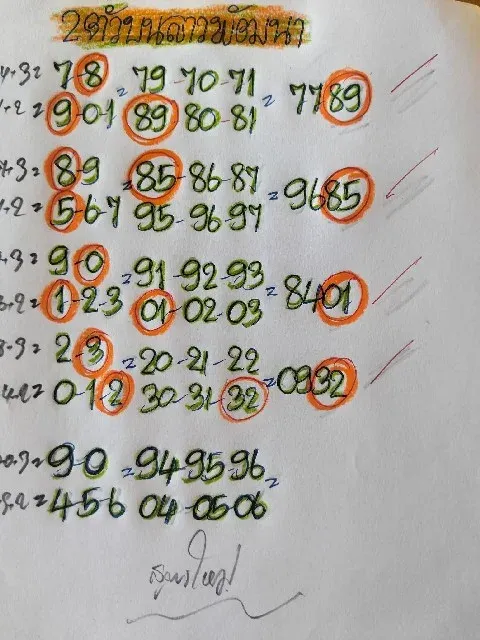 2ตัวบนลาวพัฒนา
7-8 = 79-70-71
9-0-1 89 80-81 = 7789
8-9 = 85-86-87
5-6-7 95-96-97 = 9685
9-0 = 91-92-93
1-2-3 01-02-03 = 8401
2-3 = 20-21-22
0-1-2 30-31-32 = 0932
9-0 = 94-95-96
4-5-6 04-05-06 =